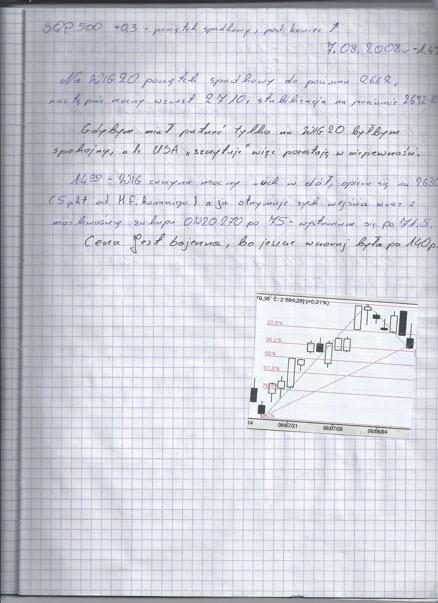 S&P500 +0,3 - początek spadkowy, pod koniec ↑
7.08.2008r
Na WIG20 początek spadkowy do poziomu 2662,
następnie mocny wzrost 2710, stabilizacja na poziomie 2692
Gdybym miał patrzeć tylko na WIG20 byłbym
spokojny, ale USA „szczytuje" więc pozostaję w niepewności.
14⁰⁰ - WIG zaczyna mocny ruch w dół, opiera się na 2630
(5 pkt od M.F. ) a ja otrzymuję syg. wejścia wraz z
możliwością zakupu OW20 270 po 75 - wystawiam się po 71,5.
Cena jest bajeczna, bo jeszcze wczoraj była po 140
79,36 C: 2 694,26] (+0,31%)
23,6%
38,2%
50%
61,8%
14 08/07/21 08/07/28 08/08/04